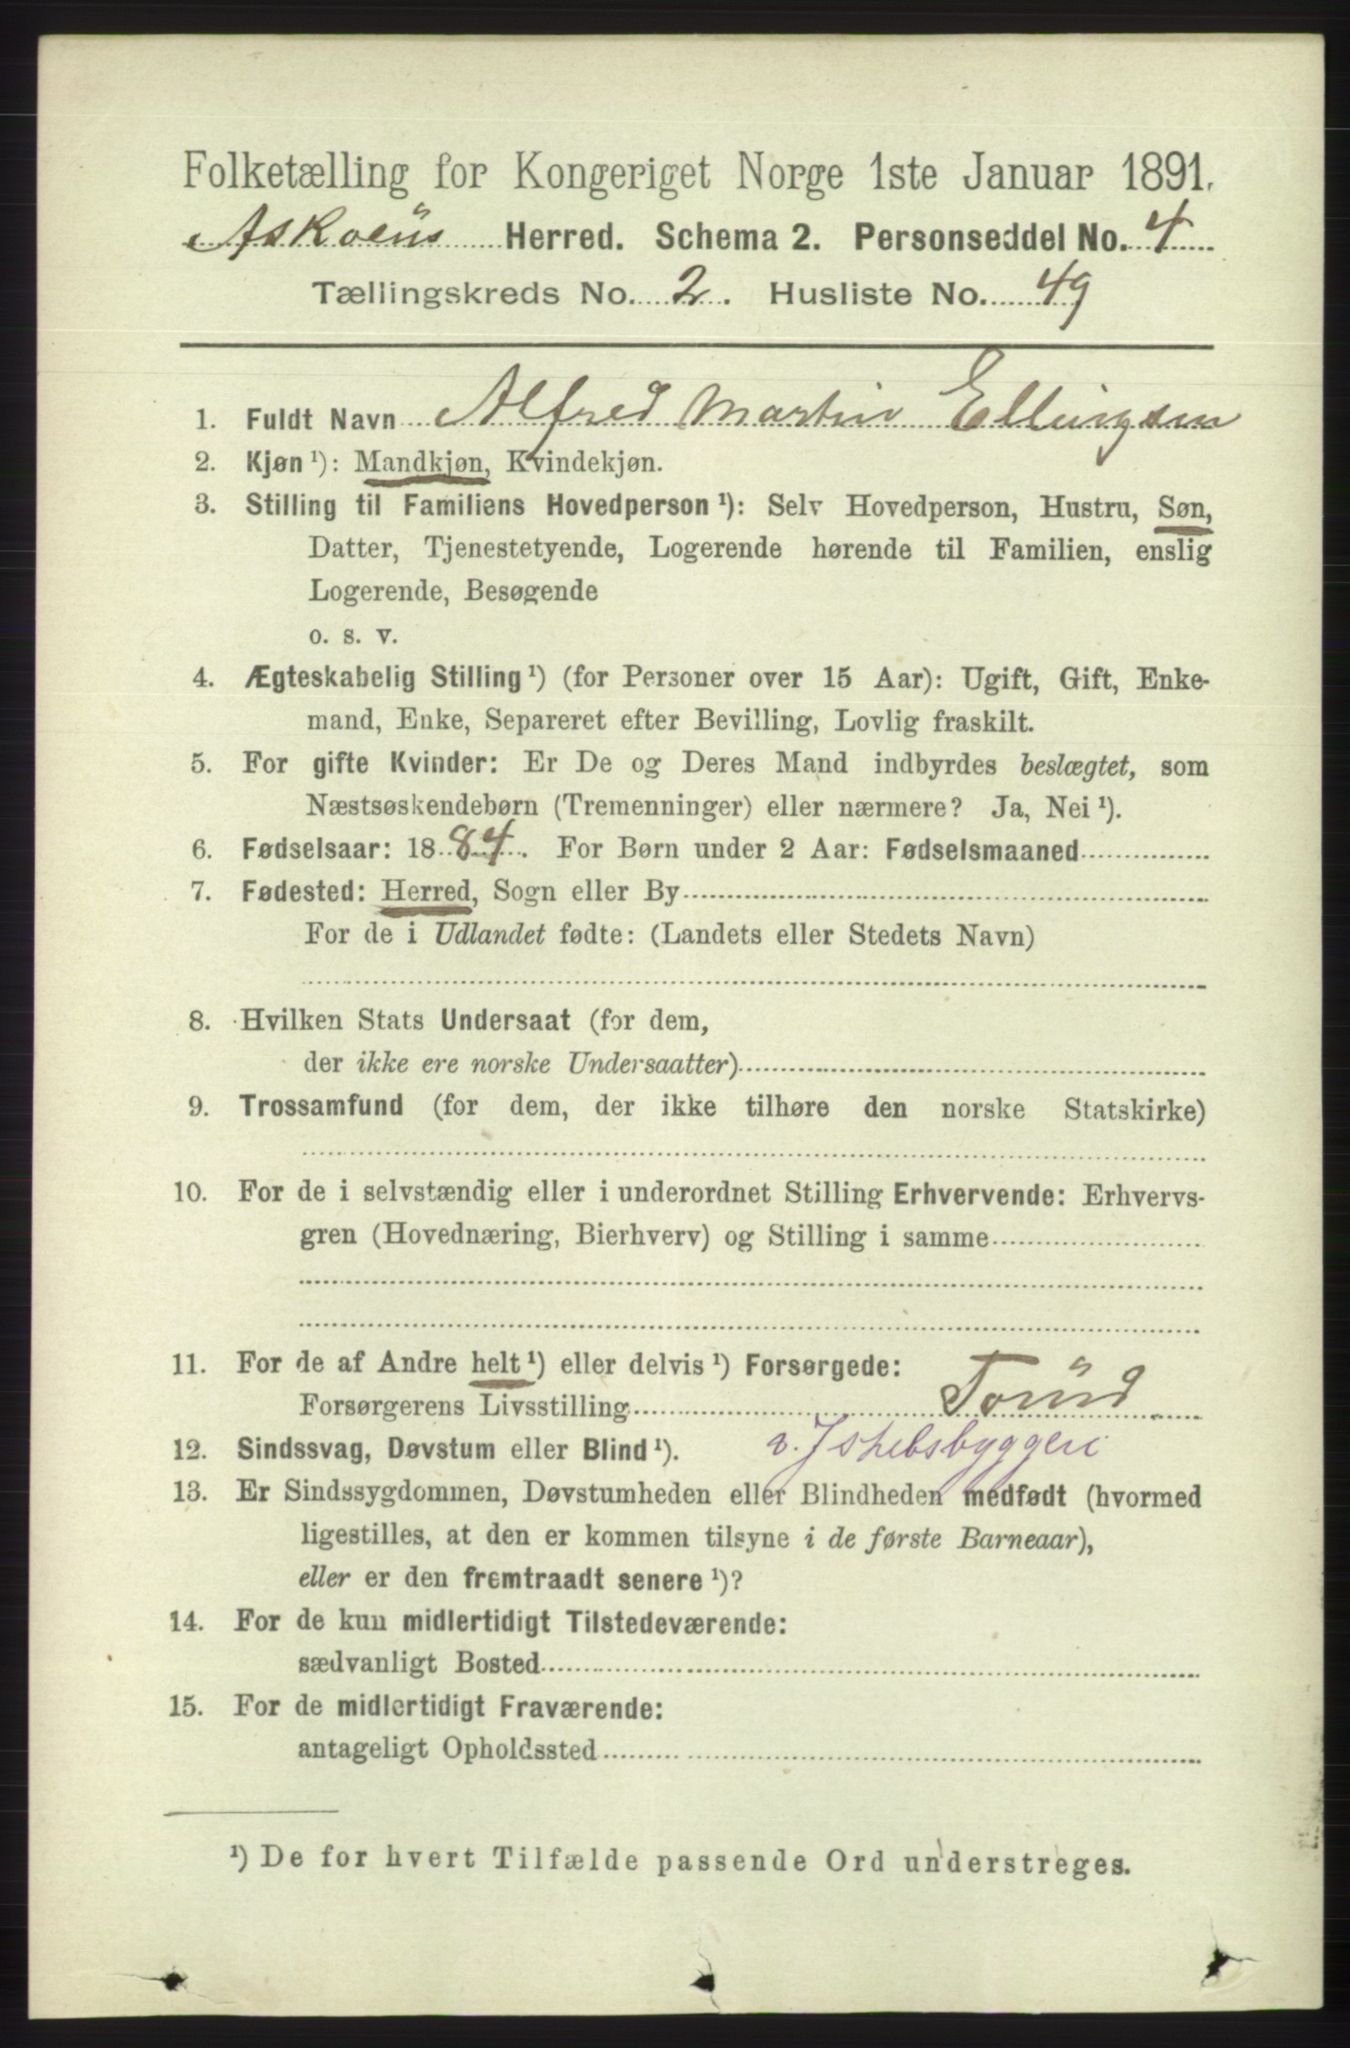 Folketælling for Kongeriget Norge 1ste Januar 1891.
Askoens Herred. Schema 2. Personseddel No. 4
Tællingskreds No. 2. Husliste No. 49
1. Fuldt Navn Alfred Martin Ellingsen
2. Kjøn ¹): Mandkjøn, Kvindekjøn.
3. Stilling til Familiens Hovedperson ¹): Selv Hovedperson, Hustru, Søn,
Datter, Tjenestetyende, Logerende hørende til Familien, enslig
Logerende, Besøgende
o. s. v.
4. Ægteskabelig Stilling ¹) (for Personer over 15 Aar): Ugift, Gift, Enke-
mand, Enke, Separeret efter Bevilling, Lovlig fraskilt.
5. For gifte Kvinder: Er De og Deres Mand indbyrdes beslægtet, som
Næstsøskendebørn (Tremenninger) eller nærmere? Ja, Nei ¹).
6. Fødselsaar: 1884. For Børn under 2 Aar: Fødselsmaaned
7. Fødested: Herred, Sogn eller By
For de i Udlandet fødte: (Landets eller Stedets Navn)
8. Hvilken Stats Undersaat (for dem,
der ikke ere norske Undersaatter)
9. Trossamfund (for dem, der ikke tilhøre den norske Statskirke)
10. For de i selvstændig eller i underordnet Stilling Erhvervende: Erhvervs-
gren (Hovednæring, Bierhverv) og Stilling i samme
11. For de af Andre helt ¹) eller delvis ¹) Forsørgede:
Forsørgerens Livsstilling
12. Sindssvag, Døvstum eller Blind ¹). v.
13. Er Sindssygdommen, Døvstumheden eller Blindheden medfødt (hvormed
ligestilles, at den er kommen tilsyne i de første Barneaar),
eller er den fremtraadt senere ¹)?
14. For de kun midlertidigt Tilstedeværende:
sædvanligt Bosted
15. For de midlertidigt Fraværende:
antageligt Opholdssted
¹) De for hvert Tilfælde passende Ord understreges.